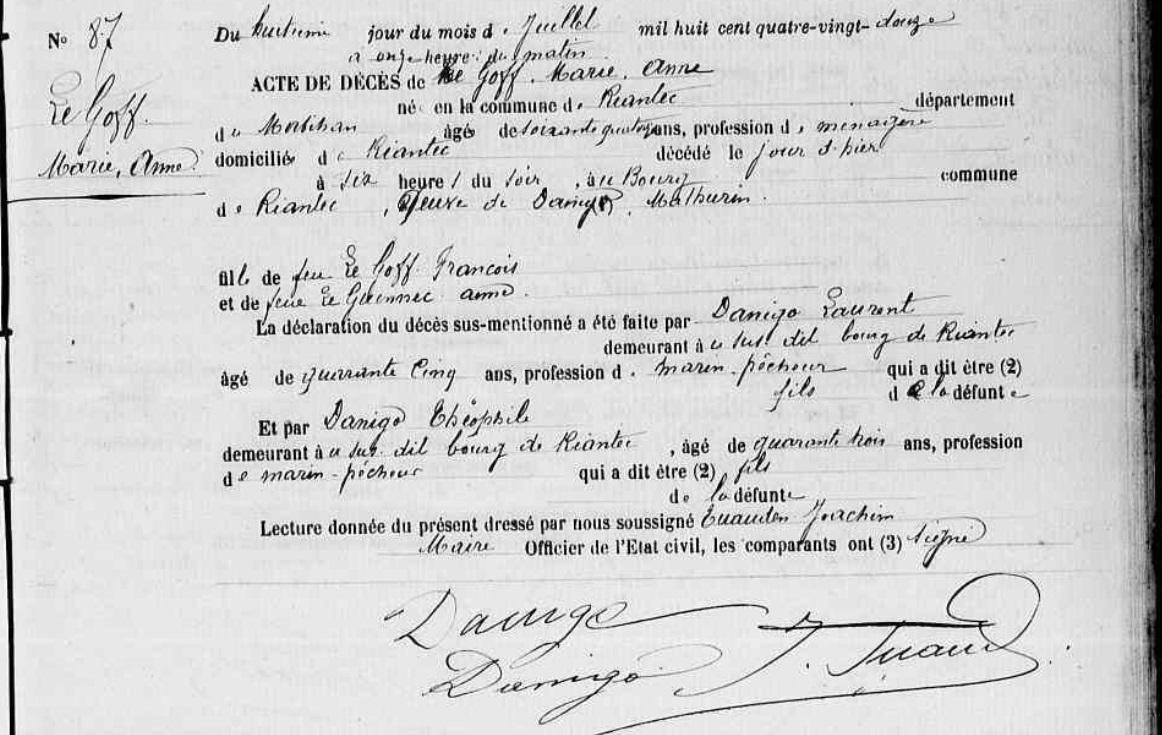 No 87
Le Goff.
Marie, Anne.
Du huitième jour du mois de Juillet mil huit cent quatre-vingt-douze
à onze heure du matin
ACTE DE DÉCÈS de Le Goff. Marie. Anne
né en la commune de Riantec département
du Morbihan âgé de soixante quatorze ans, profession de ménagère
domiciliée de Riantec décédé le jour d'hier
à six heures du soir, au Bourg commune
de Riantec, Veuve de Danigo, Mathurin.
fille de feu Le Goff François
et de feue Le Guennec anne.
La déclaration du décès sus-mentionné a été faite par Danigo Laurent
demeurant à u sus dit bourg de Riantec
âgé de quarrante Cinq ans, profession de marin-pêcheur qui a dit être (2)
fils de la défunte
Et par Danigo Théophile
demeurant à u sus dit bourg de Riantec, âgé de quarante trois ans, profession
de marin-pêcheur qui a dit être (2) fils
de la défunte
Lecture donnée du présent dressé par nous soussigné Joachim
Maire Officier de l'Etat civil, les comparants ont (3) signé
Danigo
Danigo J.